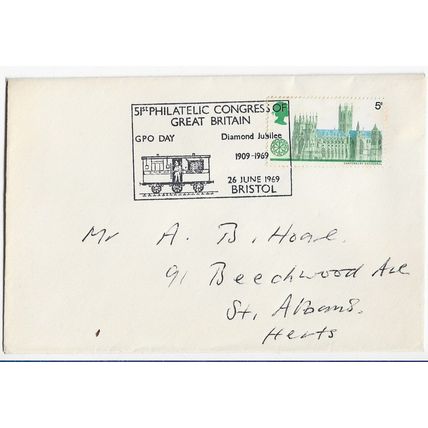 51ST PHILATELIC CONGRESS OF
GREAT BRITAIN
GPO DAY Diamond Jubilee
1909-1969
26 JUNE 1969
BRISTOL
5d
CANTERBURY CATHEDRAL
Mr A. B. Hoare.
91 Beechwood Ave
St. Albans.
Herts